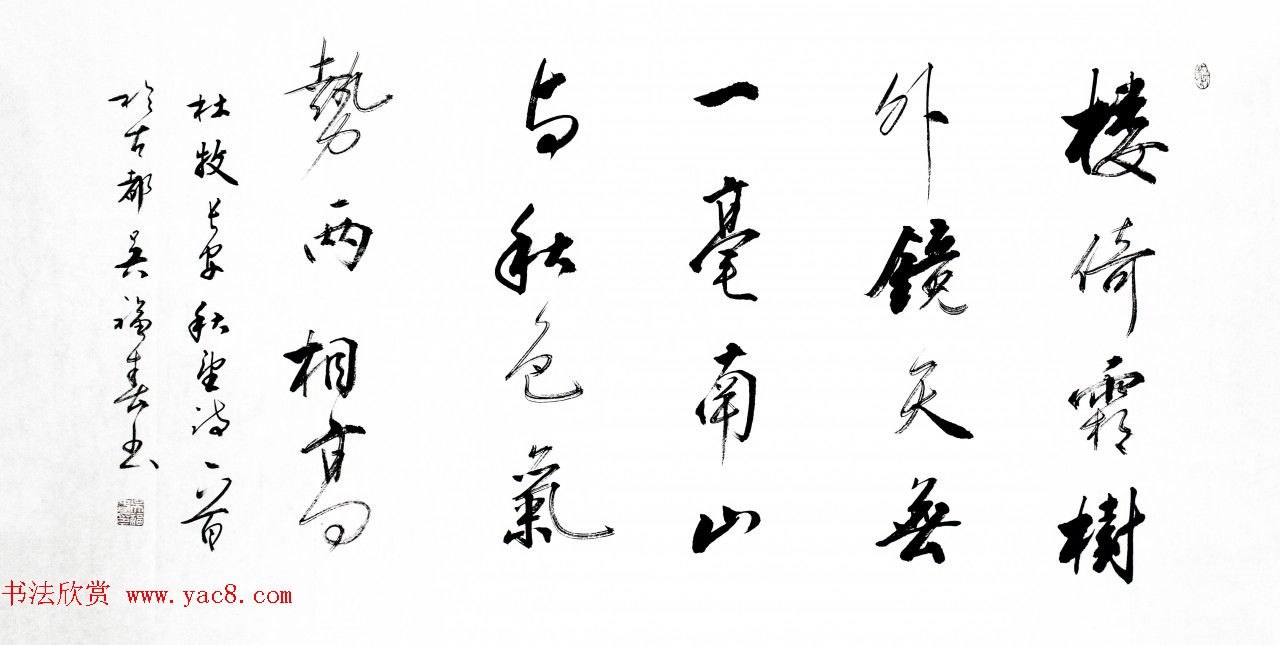 楼倚霜樹
外鏡天無
一毫南山
与秋色氣
勢两相高
杜牧长安秋望诗一首
於古都吴福春书
书法欣赏 www.yac8.com